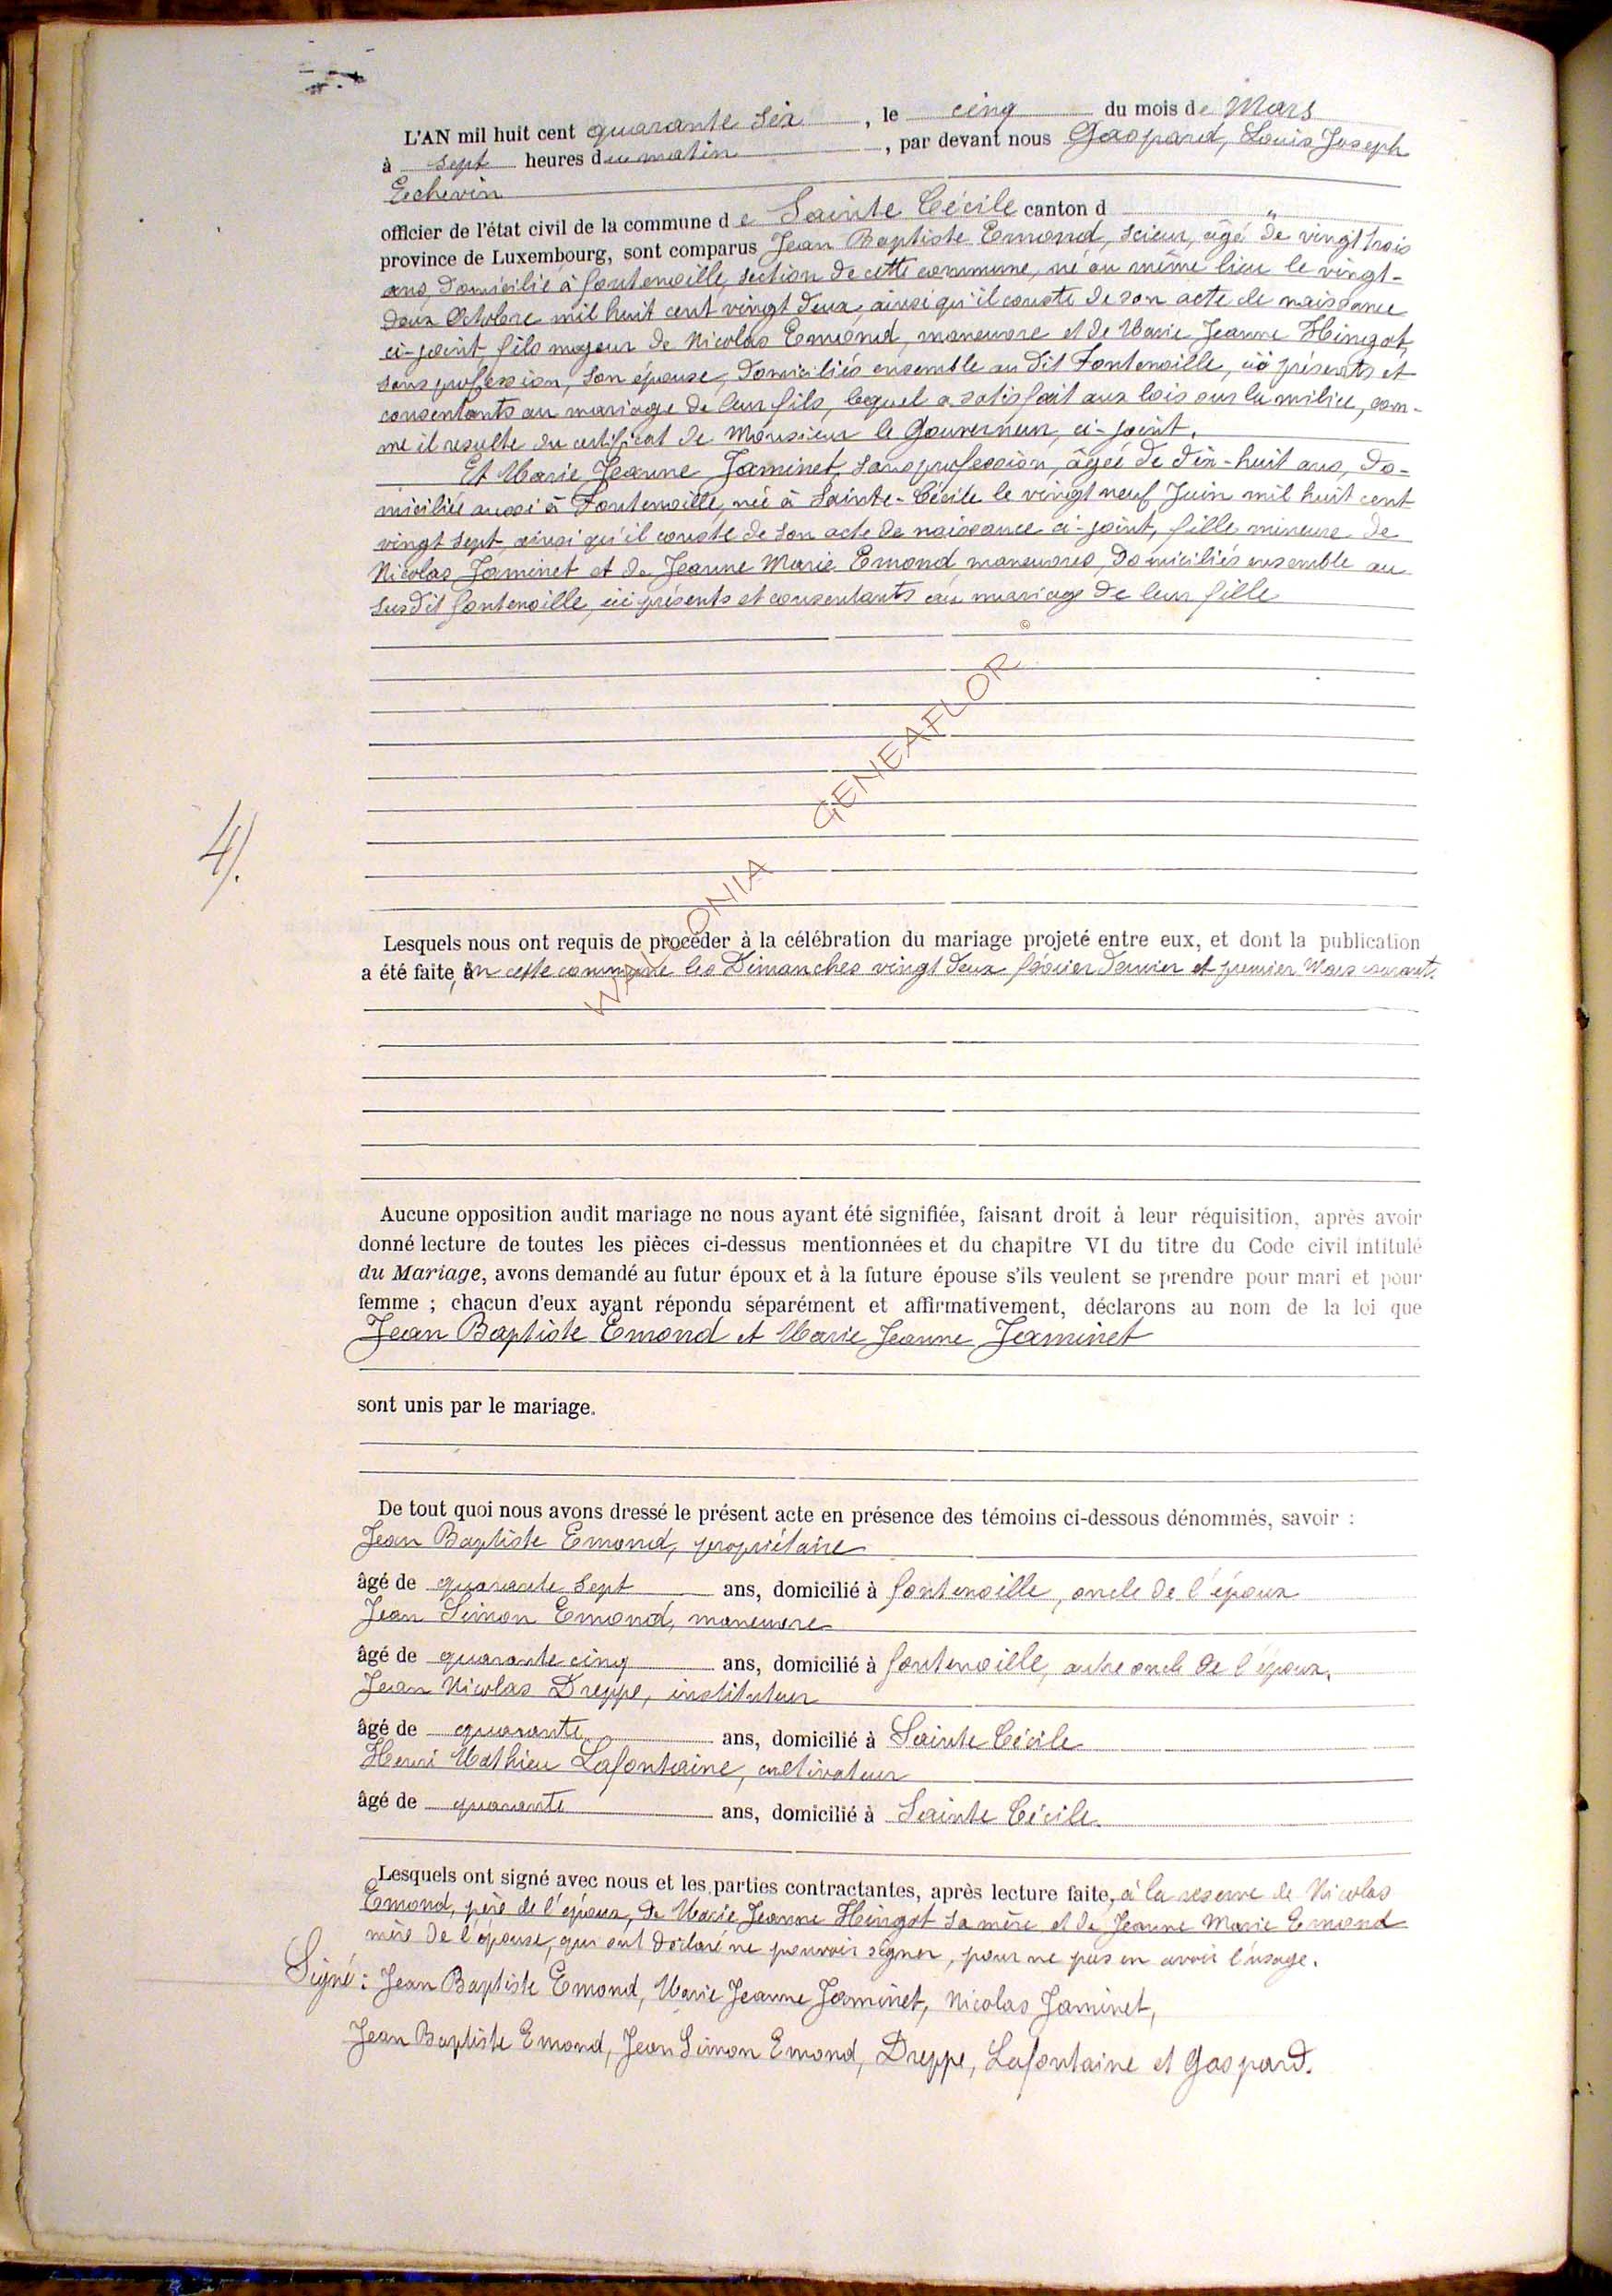 L'AN mil huit cent quarante six, le cinq du mois de Mars
à sept heures du matin, par devant nous Gaspard, Louis Joseph
Echevin
officier de l'état civil de la commune de Sainte Cécile canton d "
province de Luxembourg, sont comparus Jean Baptiste Emond, scieur, âgé de vingt trois
ans, domicilié à fontenoille, section de cette commune, né au même lieu le vingt-
deux Octobre mil huit cent vingt deux, ainsi qu'il conste de son acte de naissance
ci-joint, fils majeur de Nicolas Emond, maneuvre et de Marie Jeanne Hingot,
sans profession, son épouse, domiciliés ensemble au dit Fontenoille, ici présents et
consentants au mariage de leur fils, lequel a satisfait aux lois sur la milice, com-
me il resulte du certificat de Monsieur le Gouverneur, ci-joint.
Et Marie Jeanne Jaminet, sans profession, âgée de dix-huit ans, do-
miciliée aussi à Fontenoille, née à Sainte-Cécile le vingt neuf Juin mil huit cent
vingt sept, ainsi qu'il conste de son acte de naissance ci-joint, fille mineure de
Nicolas Jaminet et de Jeanne Marie Emond, maneuvres, domiciliés ensemble au
susdit fontenoille, ici présents et consentants au mariage de leur fille
WALLONIA GENEAFLOR ©
4/.
Lesquels nous ont requis de procéder à la célébration du mariage projeté entre eux, et dont la publication
a été faite, en cette commune les Dimanches vingt deux février dernier et premier Mars courant.
Aucune opposition audit mariage ne nous ayant été signifiée, faisant droit à leur réquisition, après avoir
donné lecture de toutes les pièces ci-dessus mentionnées et du chapitre VI du titre du Code civil intitulé
du Mariage, avons demandé au futur époux et à la future épouse s'ils veulent se prendre pour mari et pour
femme ; chacun d'eux ayant répondu séparément et affirmativement, déclarons au nom de la loi que
Jean Baptiste Emond et Marie Jeanne Jaminet
sont unis par le mariage.
De tout quoi nous avons dressé le présent acte en présence des témoins ci-dessous dénommés, savoir :
Jean Baptiste Emond, propriétaire
âgé de quarante sept ans, domicilié à fontenoille, oncle de l'époux
Jean Simon Emond, maneuvre
âgé de quarante cinq ans, domicilié à fontenoille, autre oncle de l'époux.
Jean Nicolas Dreppe, instituteur
âgé de quarante ans, domicilié à Sainte Cécile
Henri Mathieu Lafontaine, cultivateur
âgé de quarante ans, domicilié à Sainte Cécile.
Lesquels ont signé avec nous et les parties contractantes, après lecture faite, à la reserve de Nicolas
Emond, père de l'époux, de Marie Jeanne Hingot sa mère et de Jeanne Marie Emond
mère de l'épouse, qui ont déclaré ne pouvoir signer, pour ne pas en avoir l'usage.
Signé : Jean Baptiste Emond, Marie Jeanne Jaminet, Nicolas Jaminet,
Jean Baptiste Emond, Jean Simon Emond, Dreppe, Lafontaine et Gaspard.